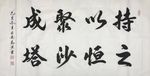 持之
以恒
聚沙
成塔